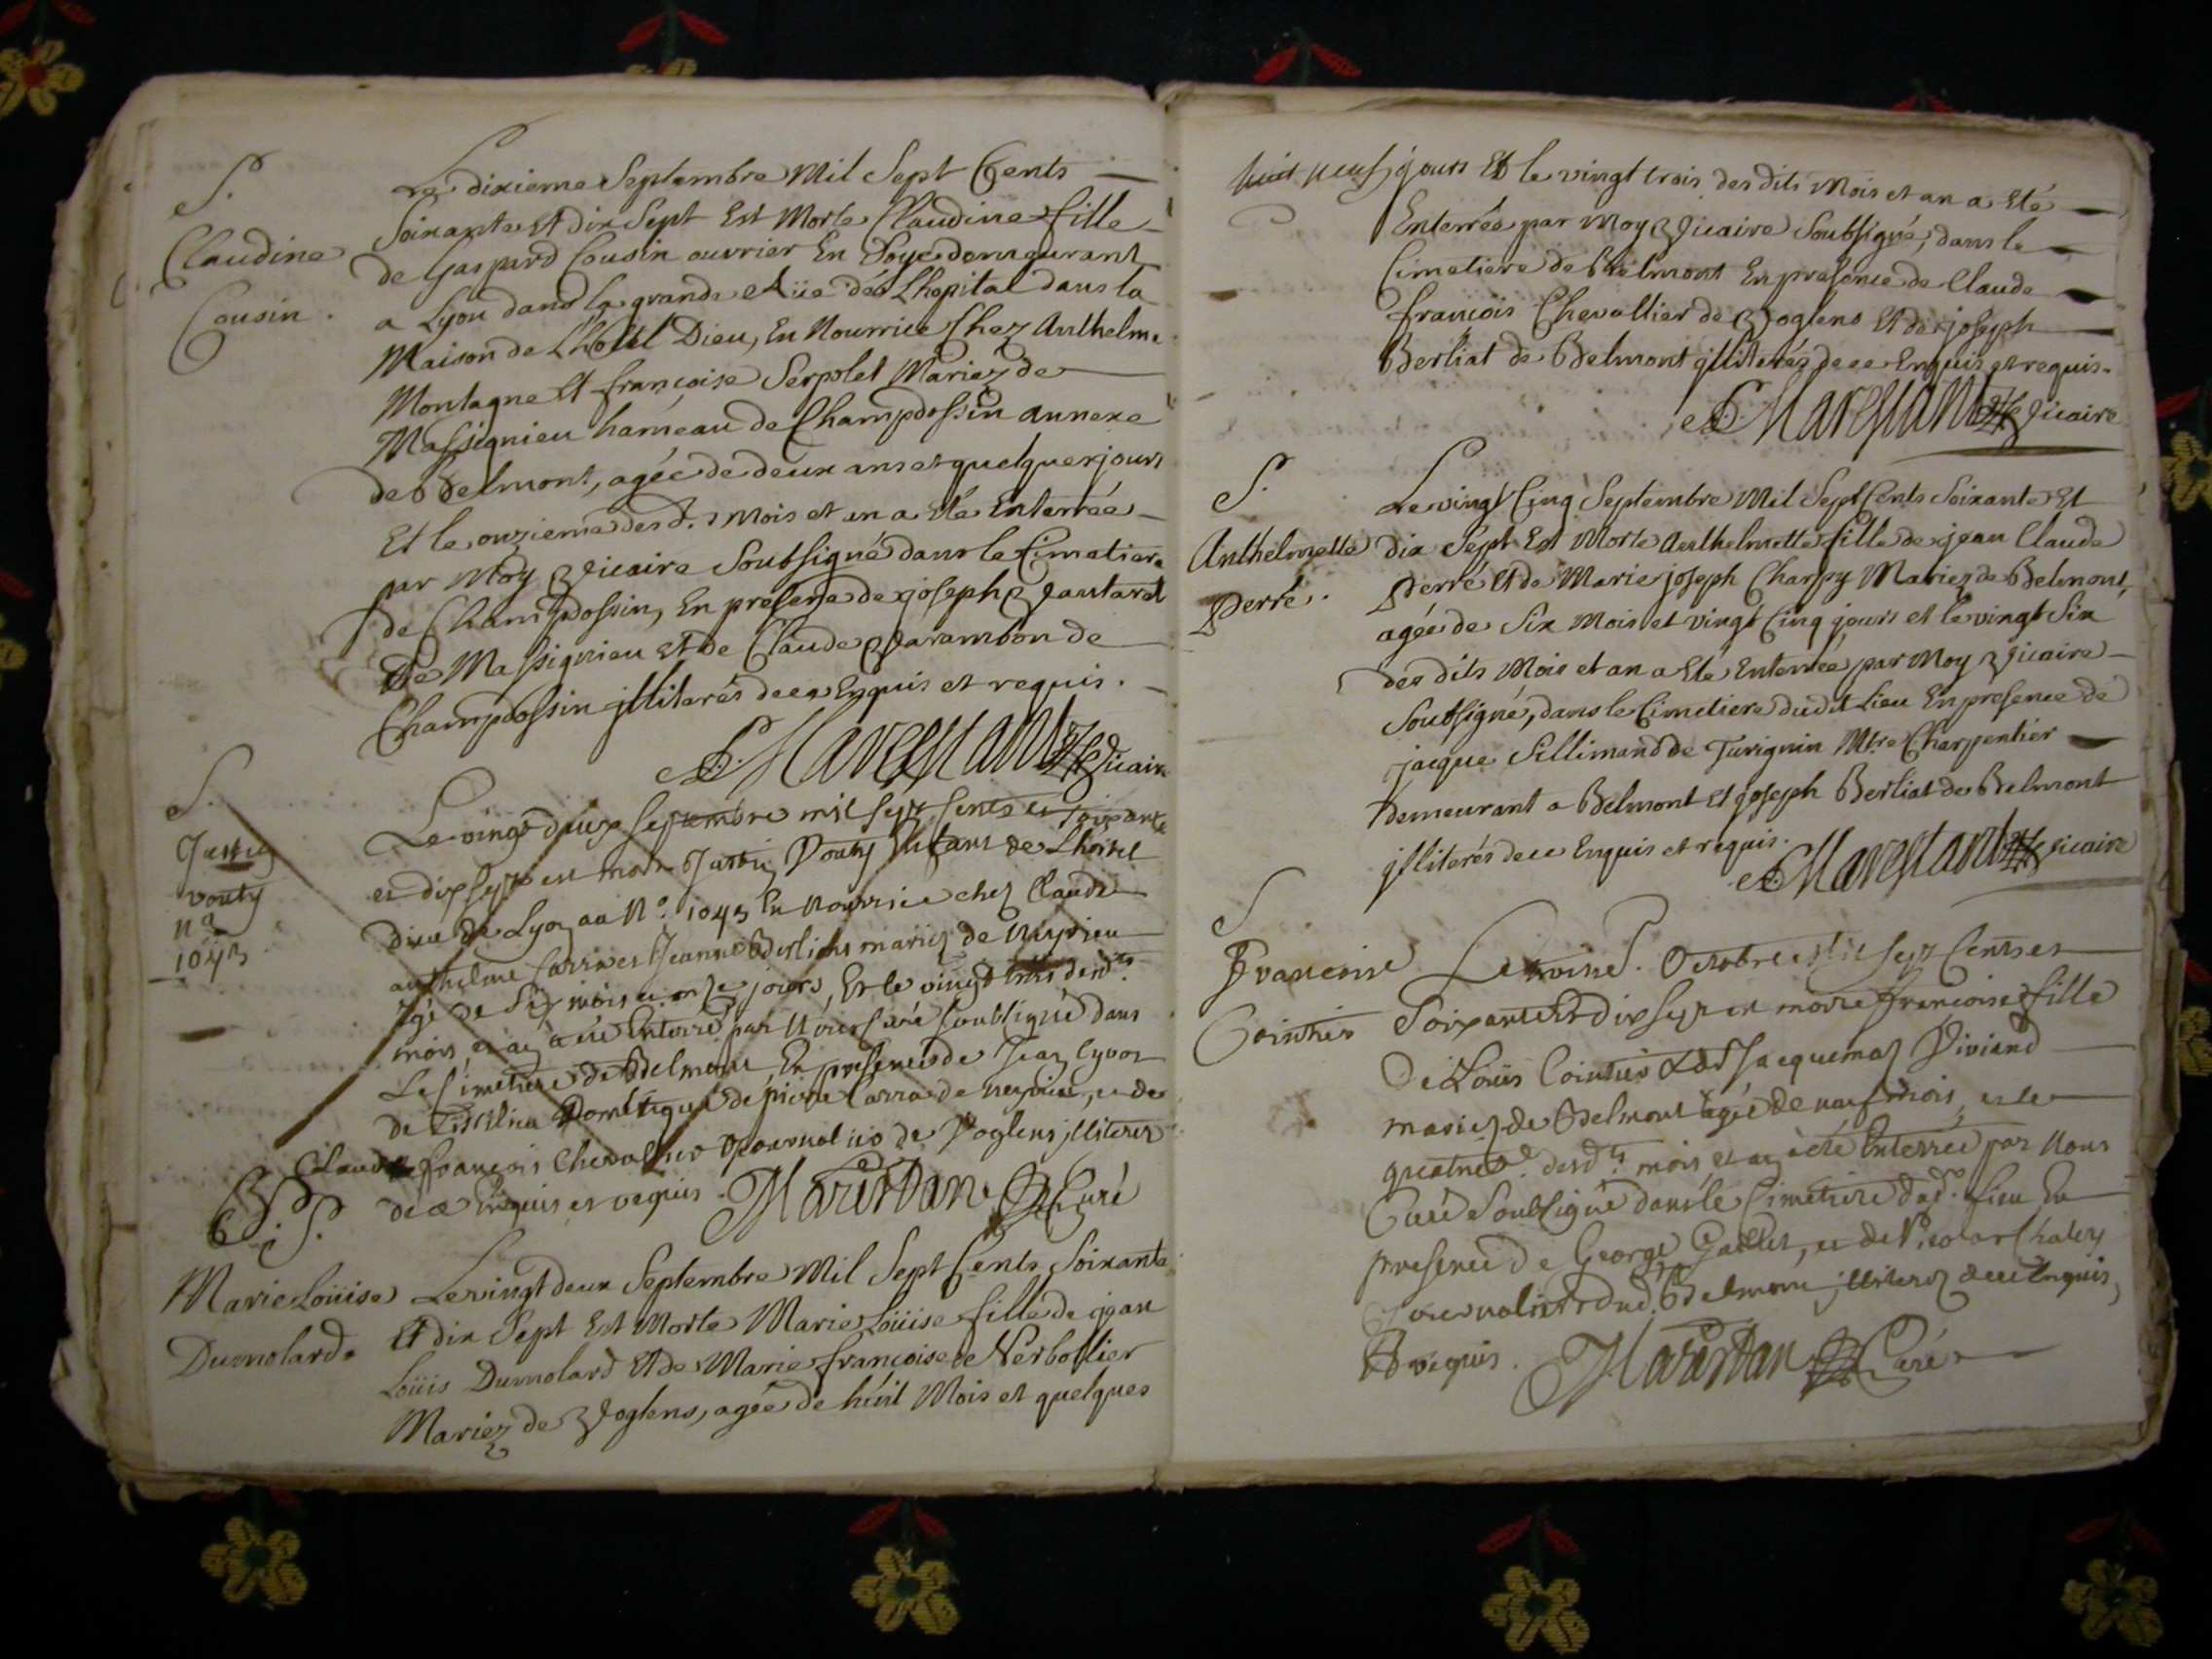 S.
Claudine
Cousin.
Le dixieme Septembre Mil Sept Cents
Soixante Et dix Sept Est Morte Claudine fille
de Gaspard Cousin ouvrier En Soye demeurant
a Lyon dans la grande Rüe de Lhopital dans la
Maison de Lhotel Dieu, En Nourrice Chez Anthelme
Montagne Et françoise Serpolet Mariez de
Massignieu hameau de Champdossin annexe
de Belmont, agée de deux ans et quelques jours
Et le onzieme des d. Mois et an a été Enterrée
par Moy Vicaire Soubsigné dans le Cimetiere
de Champdossin, En presence de joseph Vautaret
De Massignieu et de Claude Varambon de
Champdossin jlliterés de ce Enquis et requis.
Marestant Vicaire
S.
Justin
vouty
nº
1043
Le vingt deux septembre mil sept Cents et soixante
et dix sept est mort Justin Vouty Enfant de Lhotel
dieu de Lyon au Nº. 1043 En nourrice chez Claude
anthelme Carra et Jeanne Berliat mariez de Neyrieu
agé de six mois et onze jours, Et le vingt trois desdts.
mois et an a été Enterré par Nous Curé soubsigné dans
Le Cimetiere de Belmont En presence de Jean Cyvoz
de Domestique de pierre Carra de neyrieu, et de
Claude françois Chevallier Journalier de Voglens jlliterez
de ce Enquis et requis. Marestan Curé
B.S.
Marie Loüise
Dumolard
Le vingt deux Septembre Mil Sept Cents Soixante
Et dix Sept Est Morte Marie Loüise fille de jean
Loüis Dumolard Et de Marie françoise de Nerbollier
Mariez de Voglens, agée de huit Mois et quelques
huit neuf jours Et le vingt trois des dits Mois et an a Eté
Enterrée par Moy Vicaire Soubsigné, dans le
Cimetiere de Belmont En presence de Claude
françois Chevallier de Voglens Et de joseph
Berliat de Belmont jlliterés de ce Enquis et requis.
Marestant Vicaire
S.
Anthelmette
Perré.
Le vingt Cinq Septembre Mil Sept Cents Soixante Et
dix Sept Est Morte Anthelmette fille de jean Claude
Perré Et de Marie joseph Charpy Mariez de Belmont,
agée de Six Mois et vingt Cinq jours et le vingt Six
des dits Mois et an a Eté Enterrée par Moy Vicaire
Soubsigné, dans le Cimetiere dudit Lieu En presence de
jacque Sillimand de Turignin Mtre Charpentier
demeurant a Belmont Et joseph Berliat de Belmont
jlliterés de ce Enquis et requis.
Marestant Vicaire
S
Francoise
Cointier
Le troise. Octobre Mil sept Cents et
Soixante Et Dix sept est morte francoise fille
De Loüis Cointier Et Jacquema Viviand
mariez de Belmont agée de neuf mois, et le
quatrie. desdts. mois et an a été Enterrée par Nous
Curé Soubsigné dans le Cimetiere dud. Lieu En
presence de George Gallet, et de Nicolas Chaley
Journaliers dud. Belmont jlliterez de ce Enquis,
Et requis. Marestan Curé